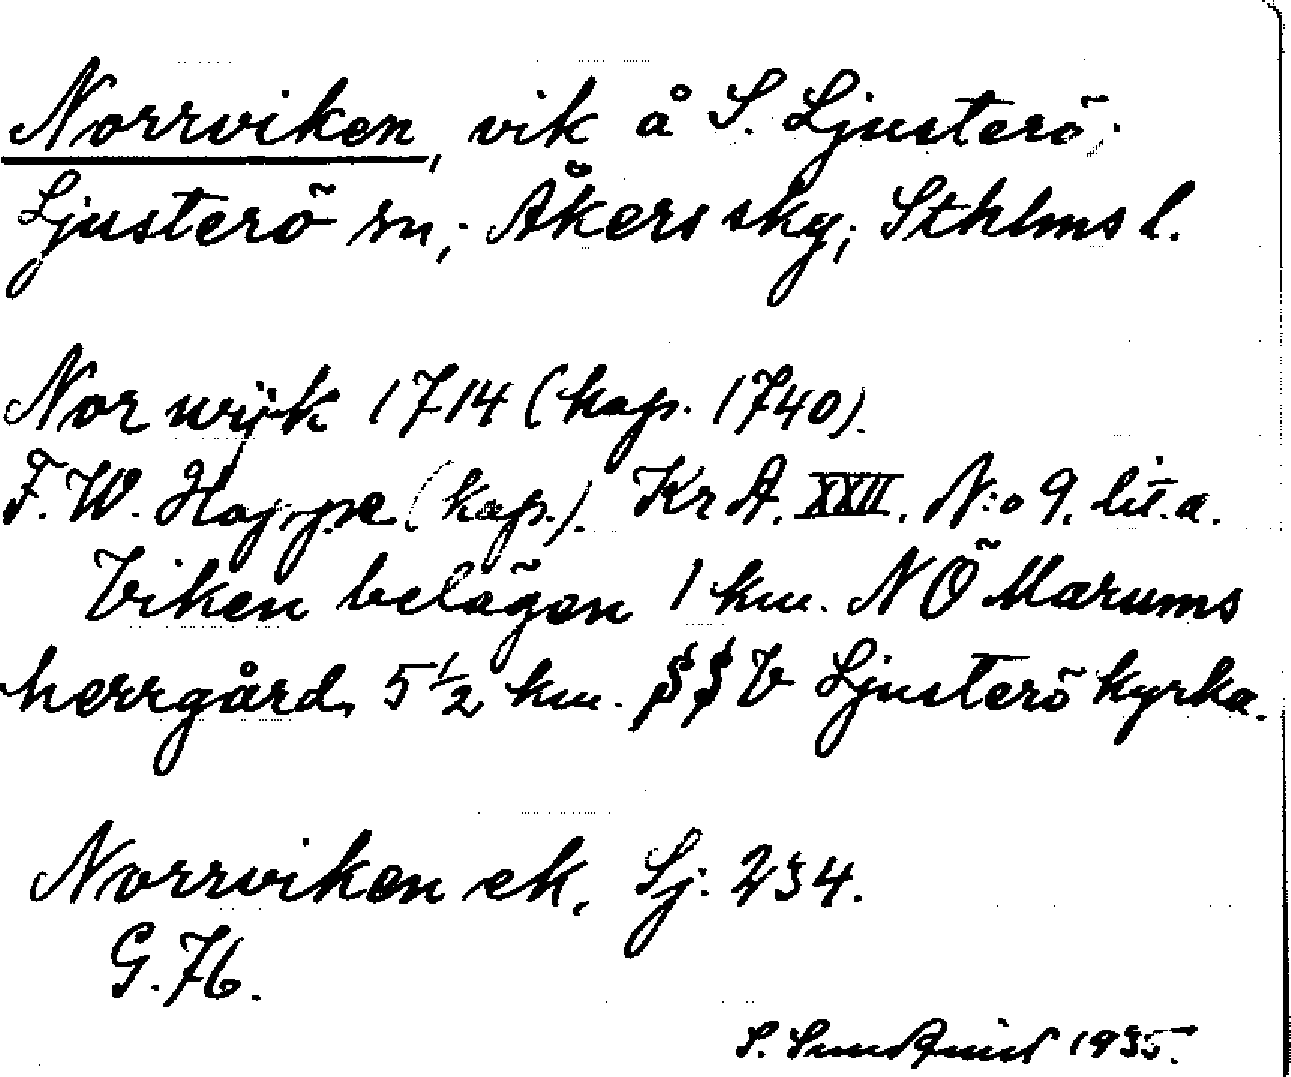 Norrviken, vik å S. Ljusterö,
Ljusterö sn, Åkers sky, Sthlms l.
Nor wÿk 1714 (kop. 1740).
F. W. Hoppe (kop.). Kr A. XXII. N:o 9. lit. a.
Viken belägen 1 km. NÖ Marums
herrgård, 5 1/2 km. SSV Ljusterö kyrka.
Norrviken ek. Sj. 234.
G. 76.
S. Sundqvist 1935.